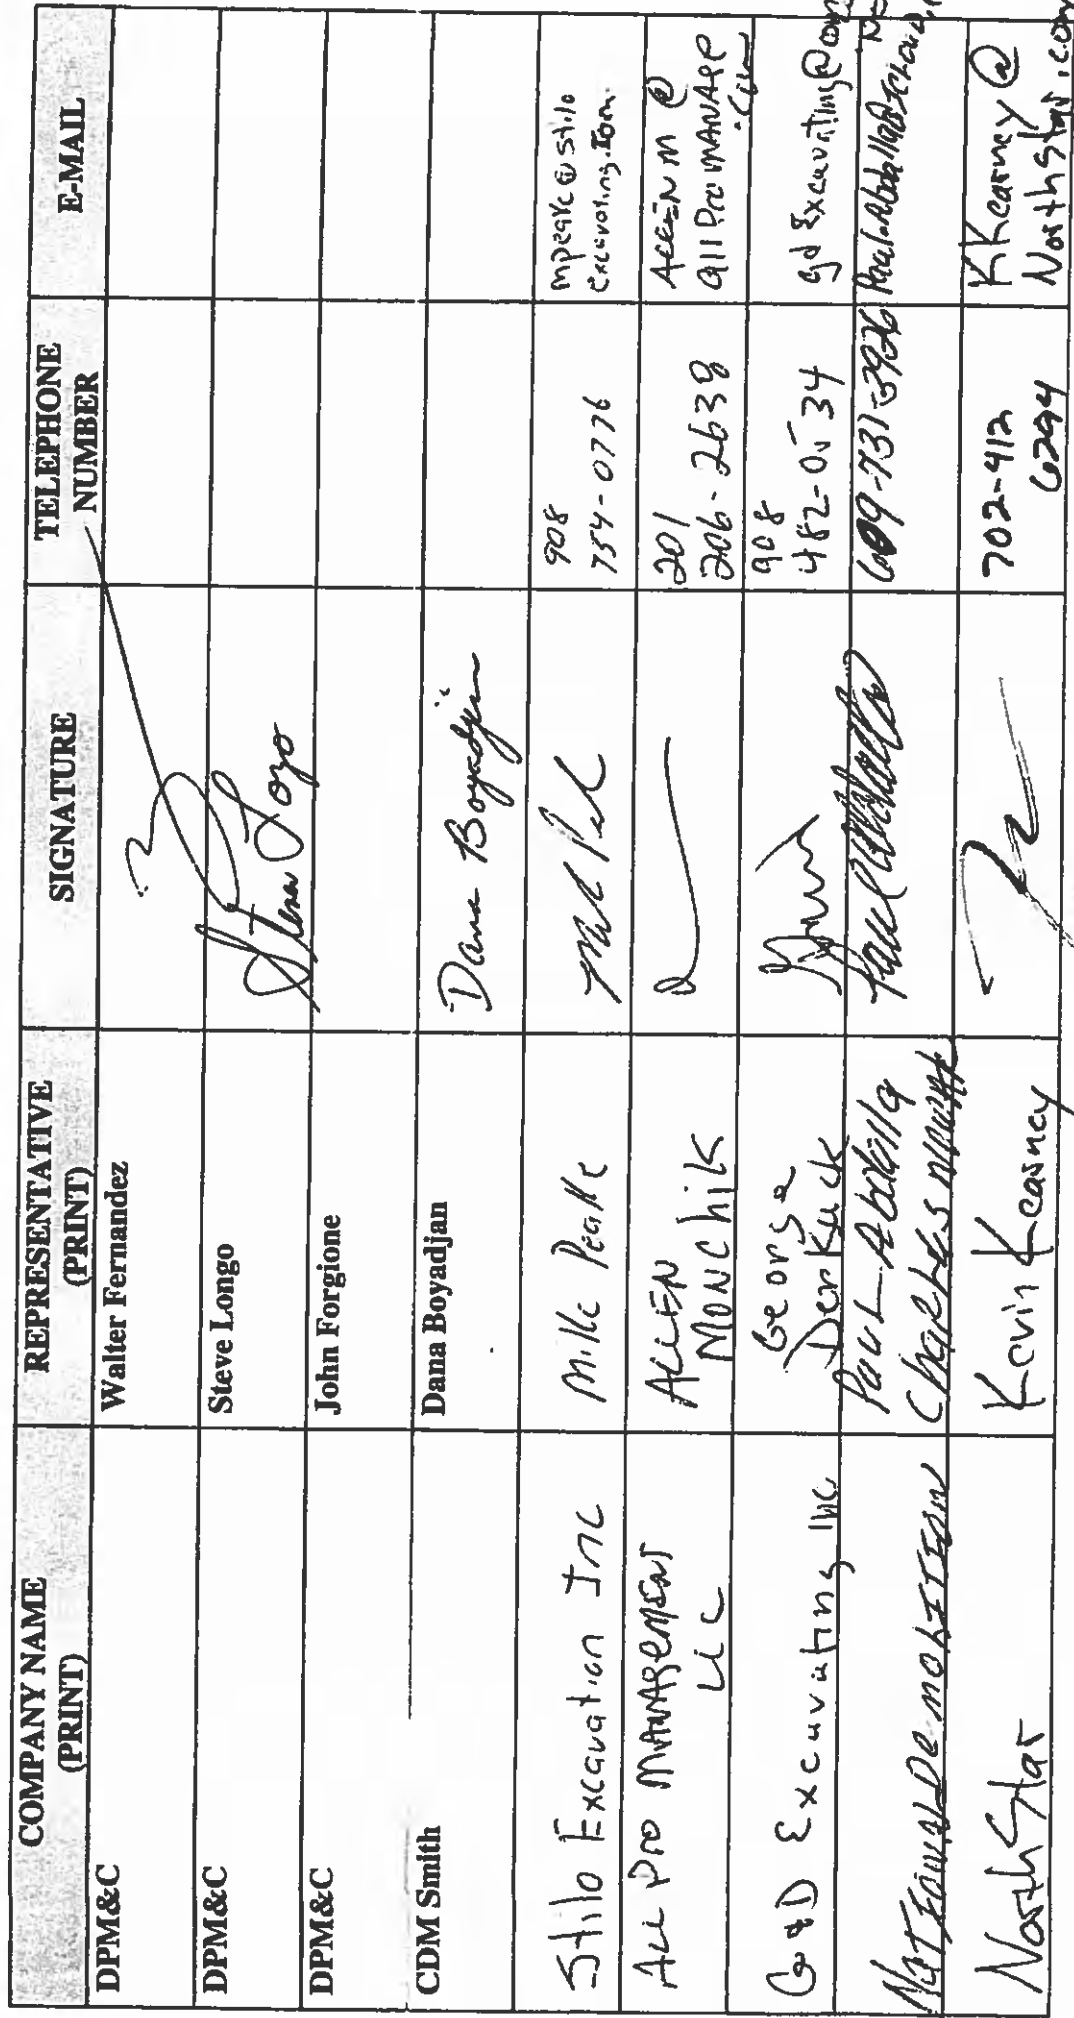 COMPANY NAME (PRINT) REPRESENTATIVE (PRINT) SIGNATURE TELEPHONE NUMBER E-MAIL
DPM&C Walter Fernandez
DPM&C Steve Longo
DPM&C John Forgione
CDM Smith Dana Boyadjan Dana Boyadjin
Stilo Excavation Inc Mike Peake 908 754-0776 mpeake@stilo
excavating.com
All Pro MANAgement LLC ALLEN MONChiK 201 206-2638 ALLEN M @
all Pro MANAge
.com
G&D Excavating Inc George Derkack 908 482-0534 gd Excavating@
NATIONAL DeMOLITION Paul Abdalla 609-731-3926
ChARLES
NorthStar Kevin Kearney 702-412 6294 KKearney@
Northstar.com